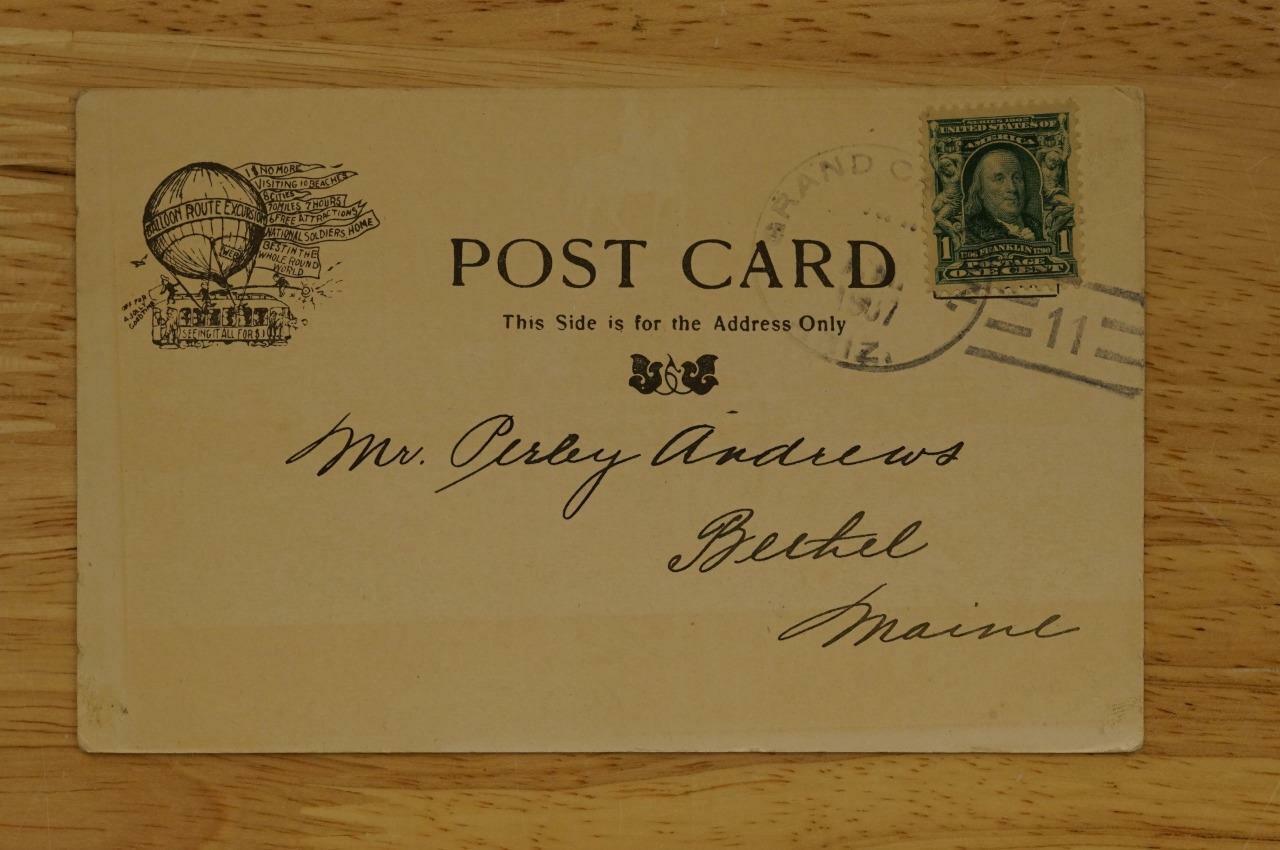 $1 NO MORE
VISITING 10 BEACHES
8 CITIES
70 MILES 7 HOURS
6 FREE ATTRACTIONS
NATIONAL SOLDIERS HOME
BEST IN THE
WHOLE ROUND
WORLD
BALLOON ROUTE EXCURSION
WEB
SEEING IT ALL FOR $1
SERIES 1902
UNITED STATES OF
AMERICA
1 1
1706 FRANKLIN 1790
POSTAGE
ONE CENT
GRAND C
1907
IZ.
11
POST CARD
This Side is for the Address Only
Mr. Perley Andrews
Bethel
Maine